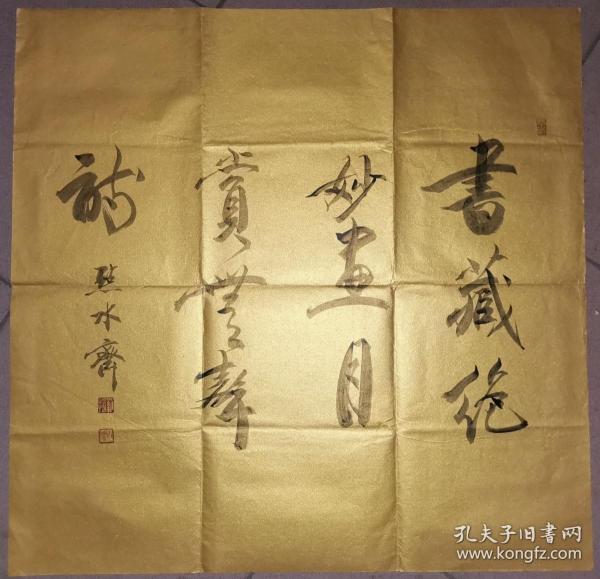 書藏絶
妙畫月
賞無聲
詩
點水齋
孔夫子旧書网
www.kongfz.com